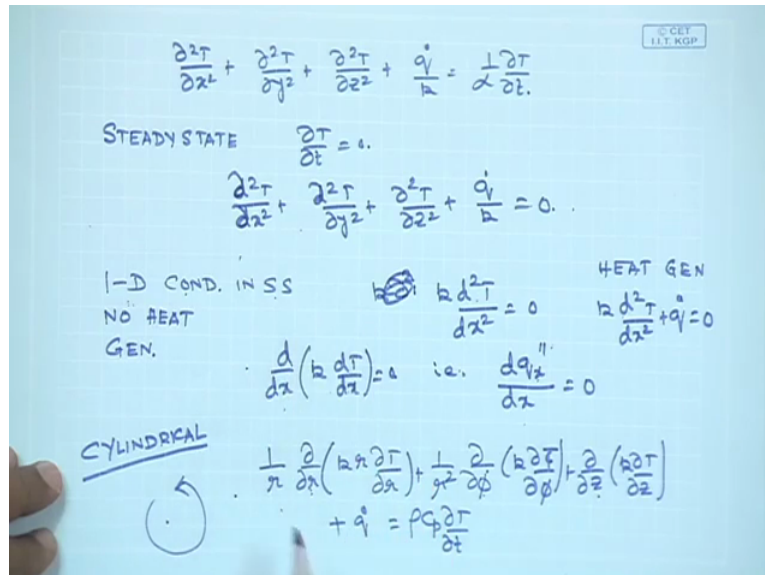 © CET
I.I.T. KGP
∂²T/∂x² + ∂²T/∂y² + ∂²T/∂z² + q̇/k = 1/α ∂T/∂t.
STEADY STATE ∂T/∂t = 0.
∂²T/dx² + ∂²T/∂y² + ∂²T/∂z² + q̇/k = 0.
HEAT GEN
1-D COND. IN SS k d²T/dx² = 0 k d²T/dx² + q̇ = 0
NO HEAT
GEN.
d/dx (k dT/dx) = 0 i.e. dq″x/dx = 0
CYLINDRICAL
1/r ∂/∂r (kr ∂T/∂r) + 1/r² ∂/∂φ (k ∂T/∂φ) + ∂/∂z (k ∂T/∂z)
+ q̇ = ρCp ∂T/∂t